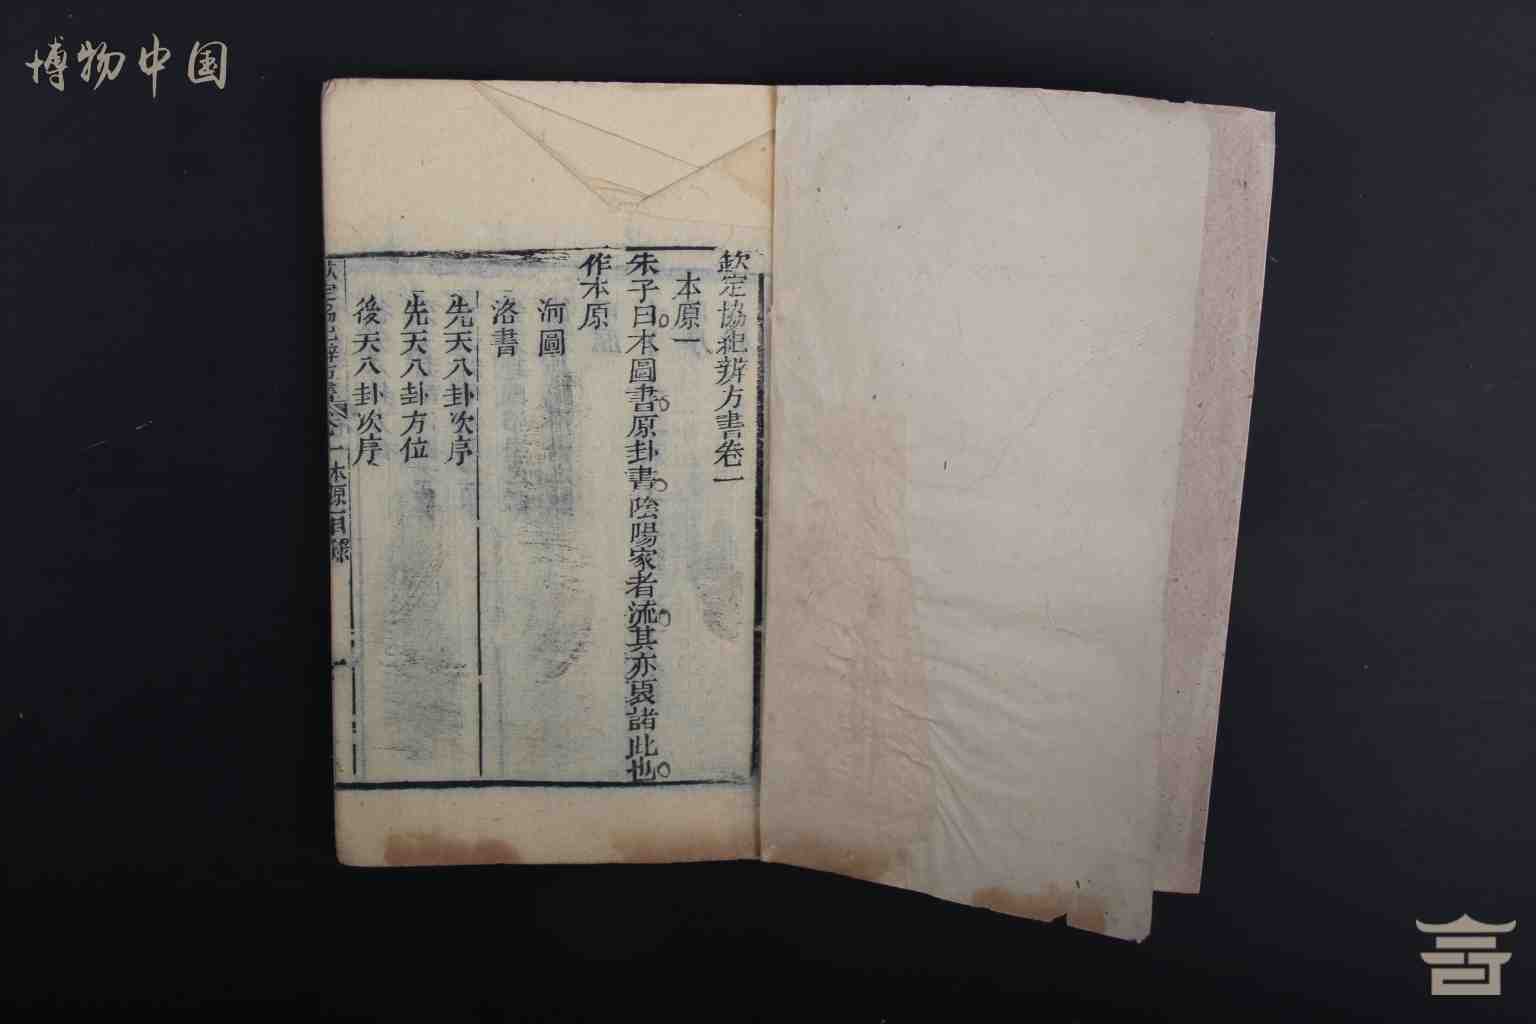 博物中国
欽定協紀辨方書卷一
本原一
朱子曰本圖書原卦書陰陽家者流其亦裒諸此也
作本原
河圖
洛書
先天八卦次序
先天八卦方位
後天八卦次序
本原一目錄